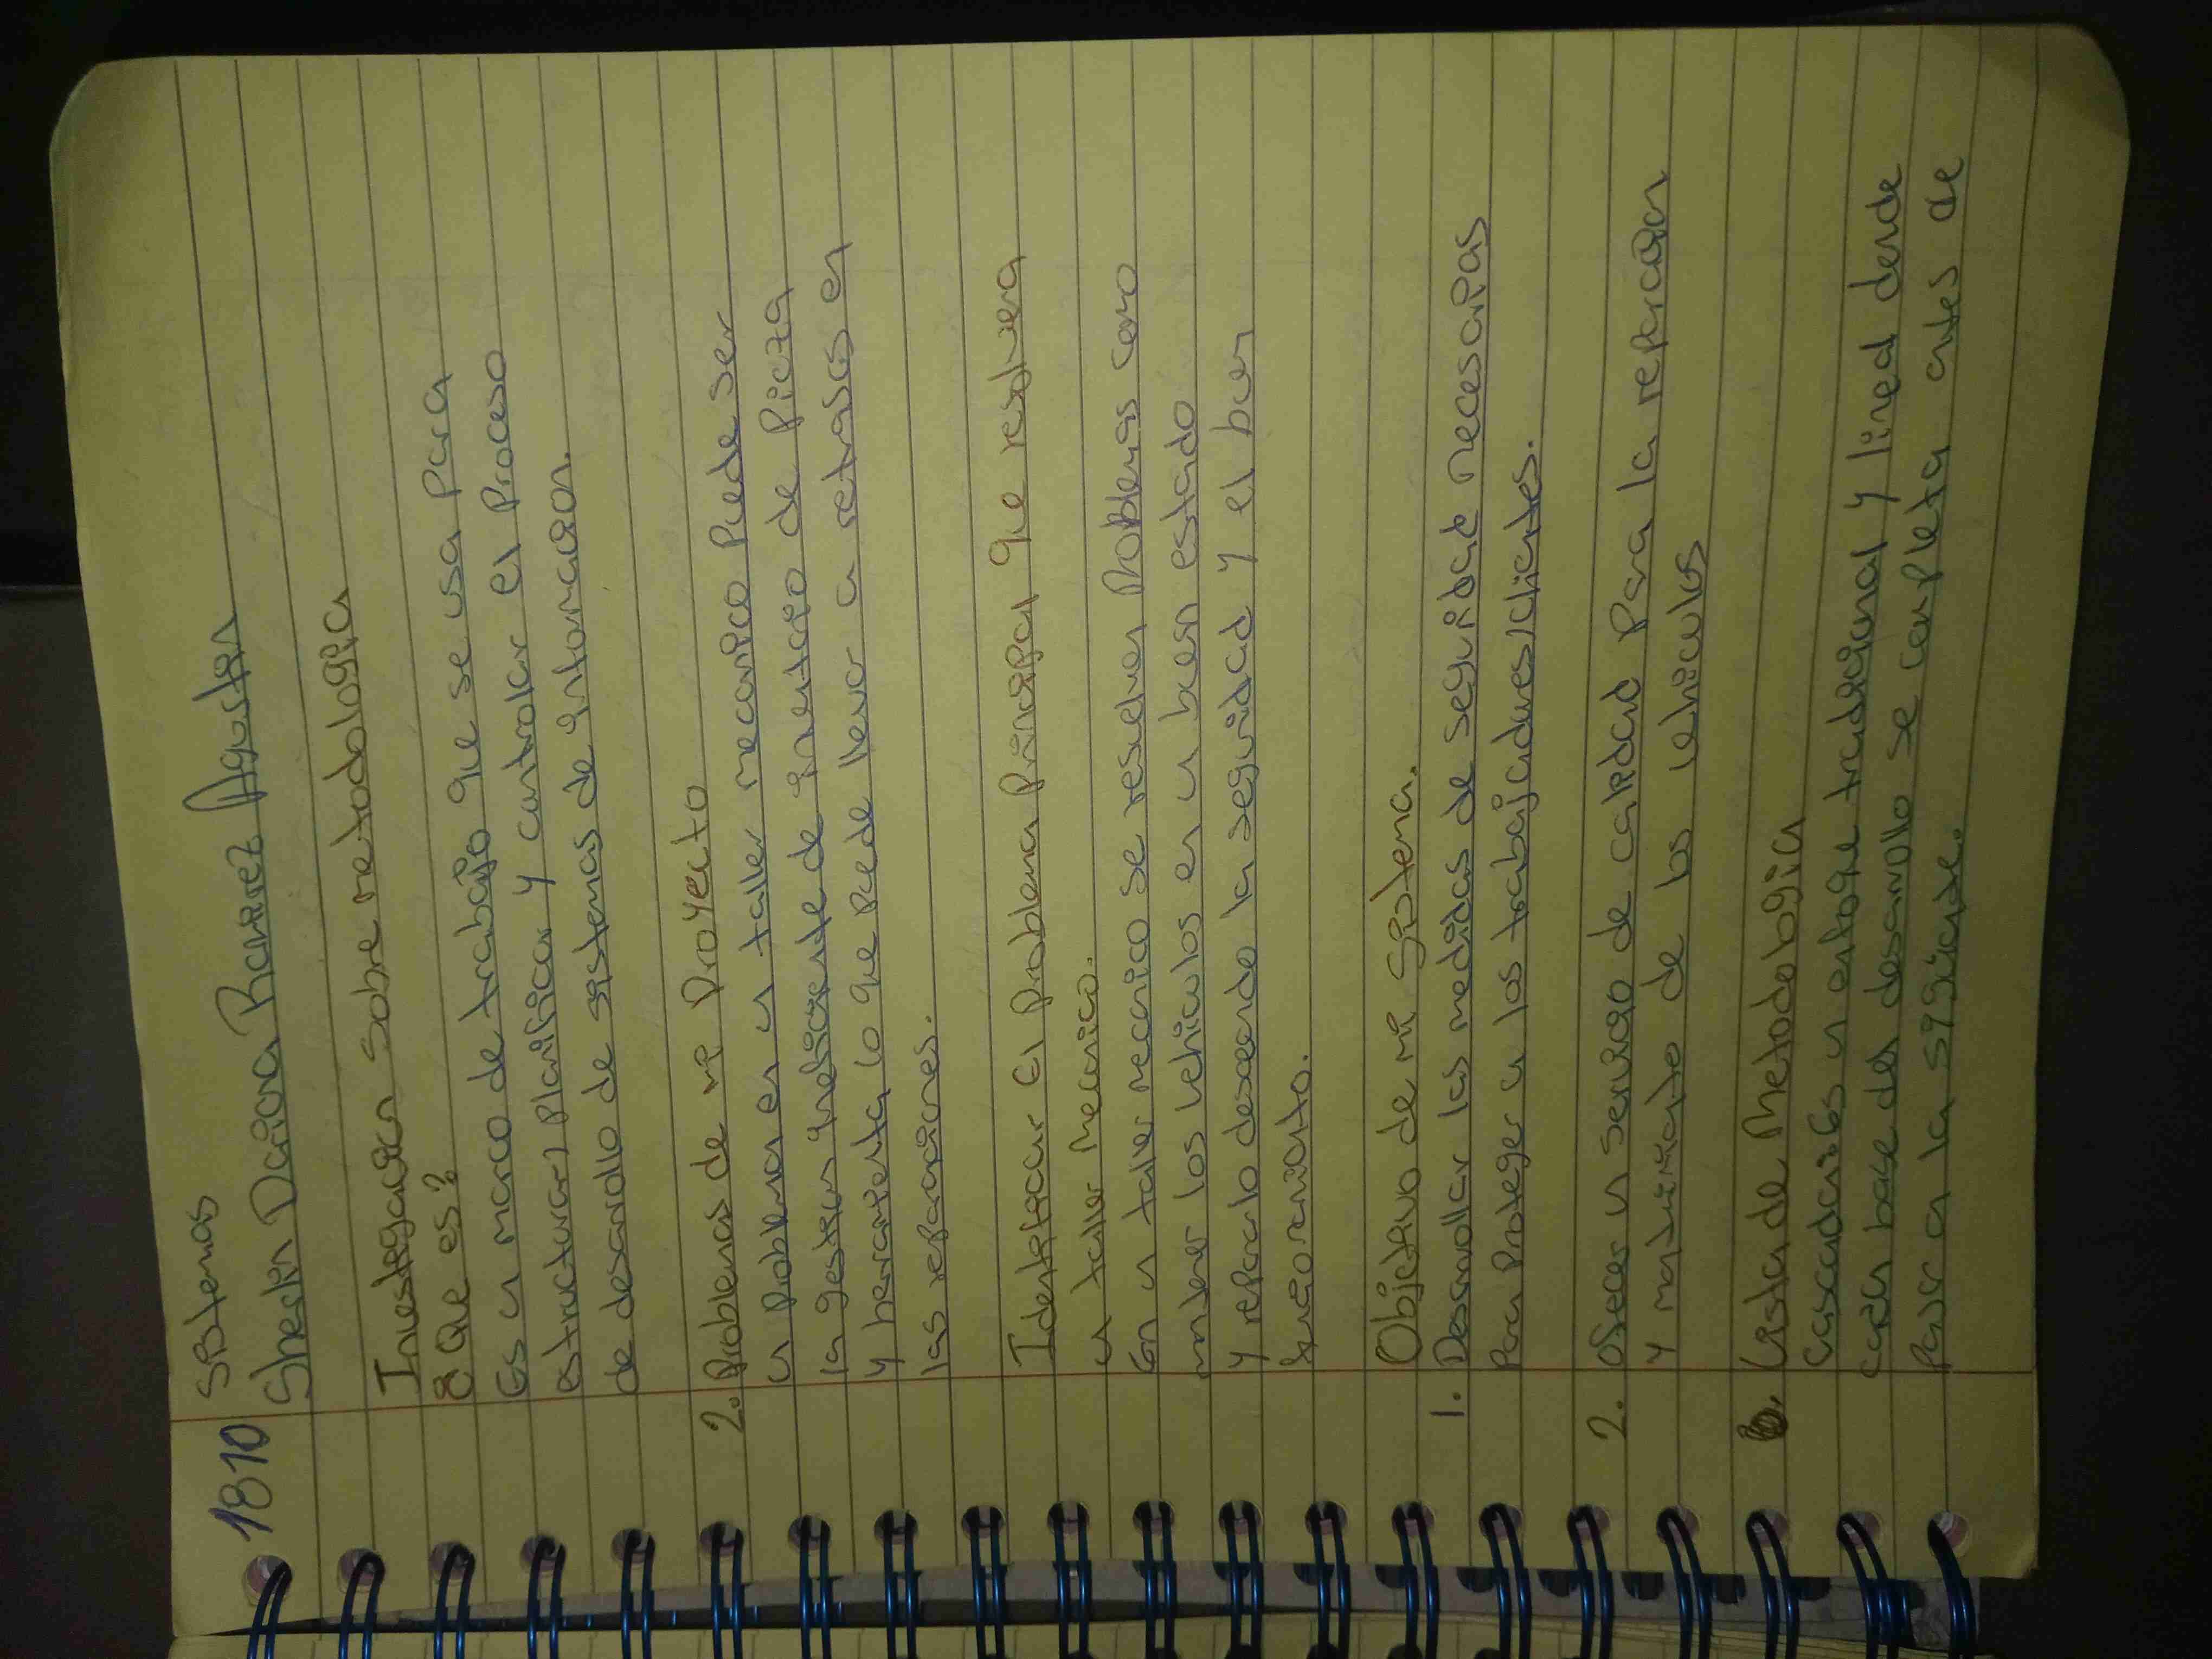 1810
Sistemas
Sherlin Dariana Ramirez Agustin
Investigacion sobre metodologia
¿Que es?
Es un marco de trabajo que se usa para
estructurar, planificar y controlar el Proceso
de desarrollo de sistemas de informacion.
2. Problemas de mi Proyecto
un problema en un taller mecanico Puede ser
la gestion ineficiente de inventario de Pieza
y herramienta lo que puede llevar a retrasos en
las reparaciones.
Identificar el problema Principal que resolvera
un taller Mecanico.
En un taller mecanico se resuelven Problemas como
mantener los vehiculos en un buen estado
y repararlo deseando la seguridad y el buen
funcionamiento.
Objetivo de mi sistema.
1. Desarrollar las medidas de seguridad necesarias
Para Proteger a los trabajadores/clientes.
2. ofrecer un servicio de calidad Para la reparcion
y mantenimiento de los vehiculos
Lista de Metodologia
Cascada: Es un enfoque tradicional y lineal donde
cada base del desarrollo se completa antes de
Pasar a la siguiente.